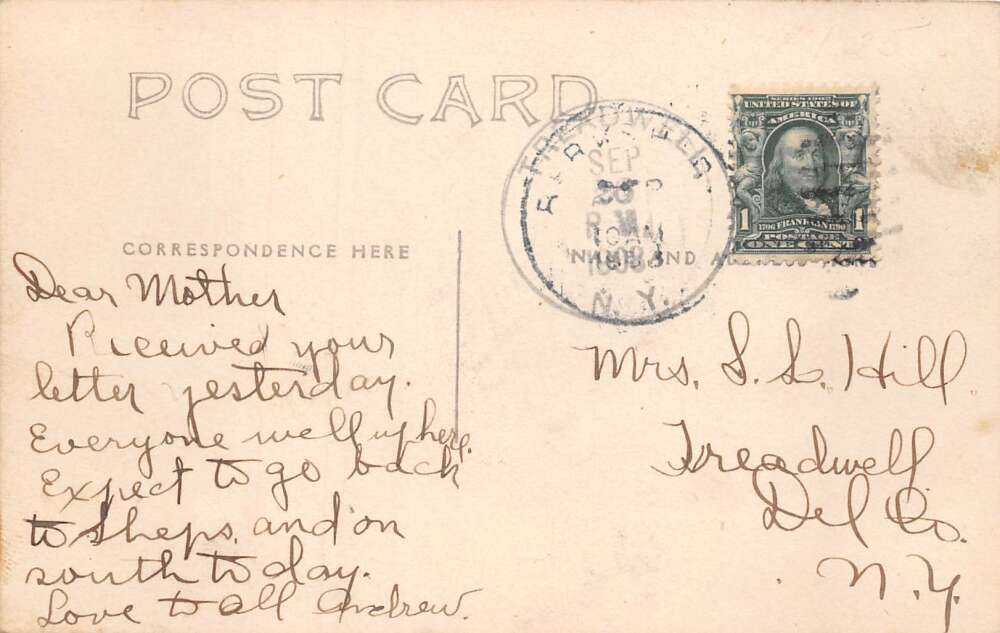 POST CARD
TREADWELL
SEP
N.Y.
SERIES 1902
UNITED STATES OF
AMERICA
1 1706 FRANKLIN 1790 1
POSTAGE
ONE CENT
CORRESPONDENCE HERE
NAME AND
Dear Mother
Received your
letter yesterday.
Everyone well up here.
Expect to go back
to Sheps. and on
south to day.
Love to all Andrew.
Mrs. S. L. Hill
Treadwell
Del Co.
N.Y.